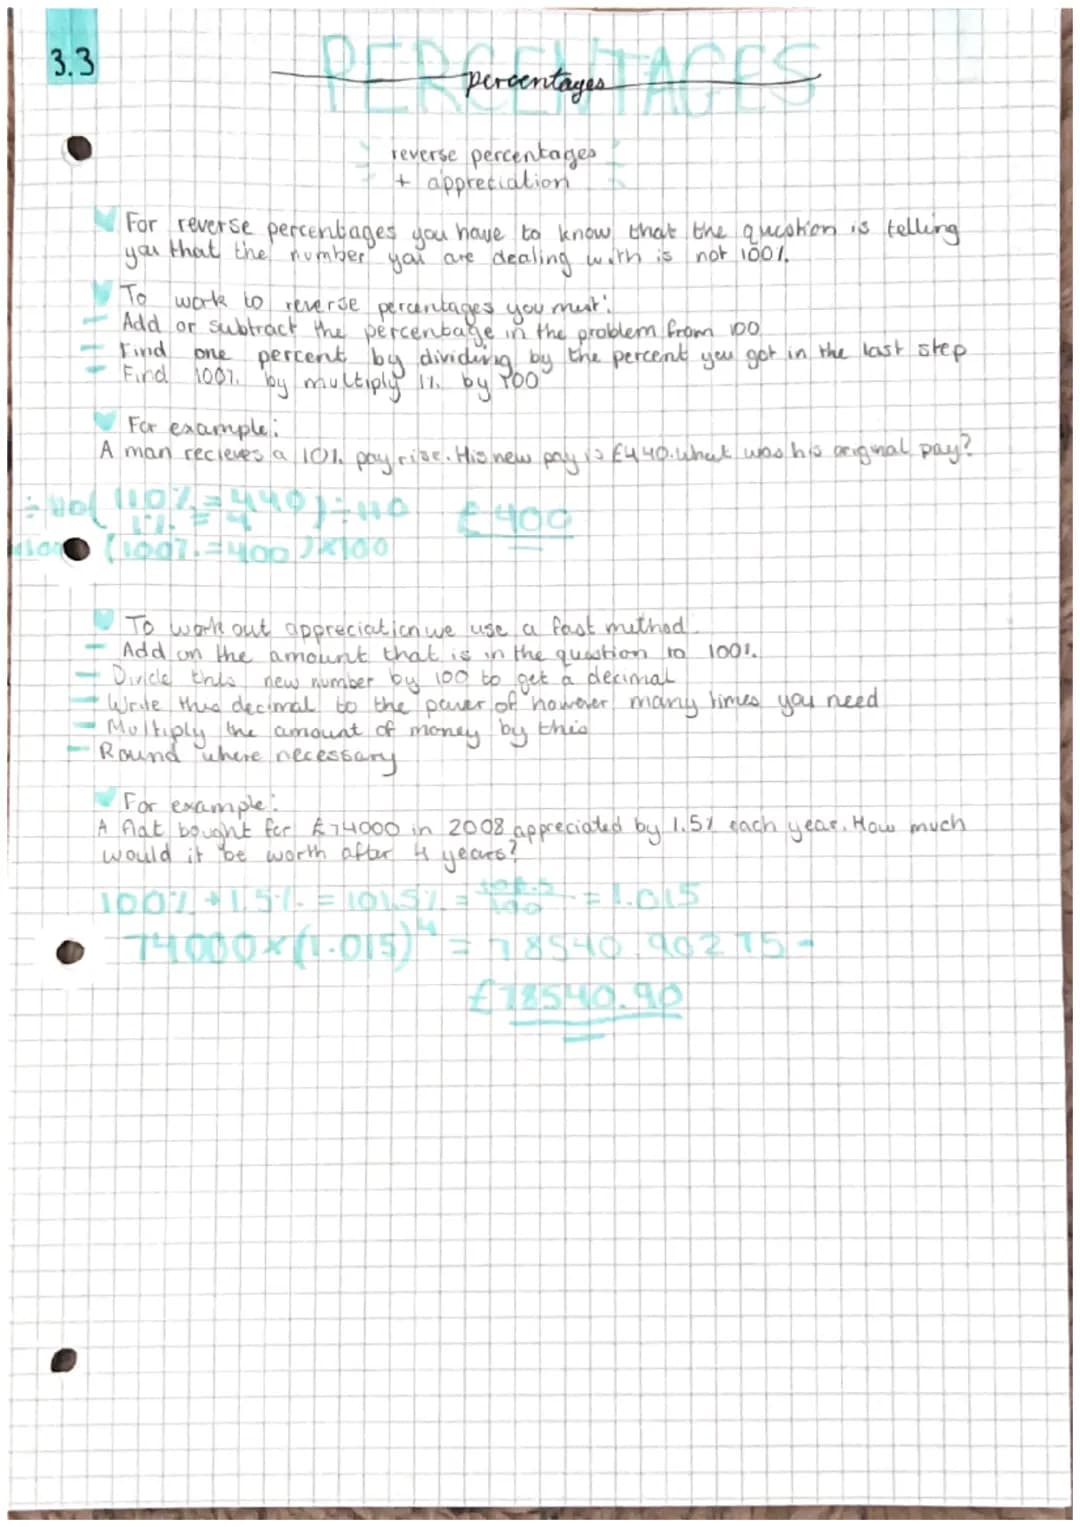 3.3
PERCENTAGES
percentages
reverse percentages
+ appreciation
For reverse percentages you have to know that the question is telling
you that the number you are dealing with is not 100%.
To work to reverse percentages you must:
Add or subtract the percentage in the problem from 100
Find one percent by dividing by the percent you got in the last step
Find 100% by multiply 1% by 100
For example:
A man recieves a 10% pay rise. His new pay is £440. What was his original pay?
÷110( 110% = 440 )÷110 £400
1% = 4
x100 (100% = 400 )x100
To work out appreciation we use a fast method.
Add on the amount that is in the question to 100%.
Divide this new number by 100 to get a decimal
Write this decimal to the power of however many times you need
Multiply the amount of money by this
Round where necessary
For example:
A flat bought for £74000 in 2008 appreciated by 1.5% each year. How much
would it be worth after 4 years?
100% + 1.5% = 101.5% = 101.5/100 = 1.015
74000 x (1.015)⁴ = 78540.90275 -
£78540.90